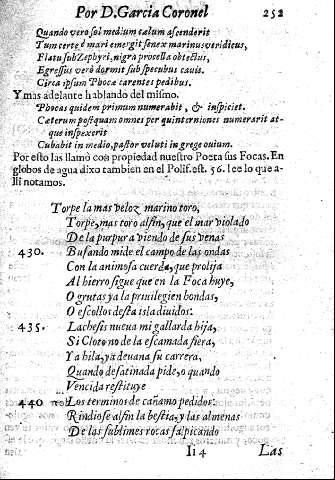 Por D. Garcia Coronel 252
Quando vero sol medium cælum ascenderit
Tum certe è mari emergit senex marinus veridicus,
Flatu sub Zephyri, nigra procella obtectus,
Egressus verò dormit sub specubus cauis.
Circa ipsum Phocæ carentes pedibus.
Y mas adelante hablando del mismo.
Phocas quidem primum numerabit, & inspiciet.
Cæterum postquam omnes per quinterniones numerarit at-
que inspexerit
Cubabit in medio, pastor veluti in grege ouium.
Por esto las llamò con propiedad nuestro Poeta sus Focas. En
globos de agua dixo tambien en el Polif. est. 56. lee lo que a-
lli notamos.
Torpe la mas veloz marino toro,
Torpe, mas toro alfin, que el mar violado
De la purpura viendo de sus venas
430. Bufando mide el campo de las ondas
Con la animosa cuerda, que prolija
Al hierro sigue que en la Foca huye,
O grutas ya la priuilegien hondas,
O escollos desta isla diuidos:
435. Lachesis nueua mi gallarda hija,
Si Cloto no de la escamada fiera,
Ya hila, ya deuana su carrera,
Quando desatinada pide, o quando
Vencida restituye
440 Los terminos de cañamo pedidos:
Rindiose alfin la bestia, y las almenas
De las sublimes rocas salpicando
Ii 4 Las